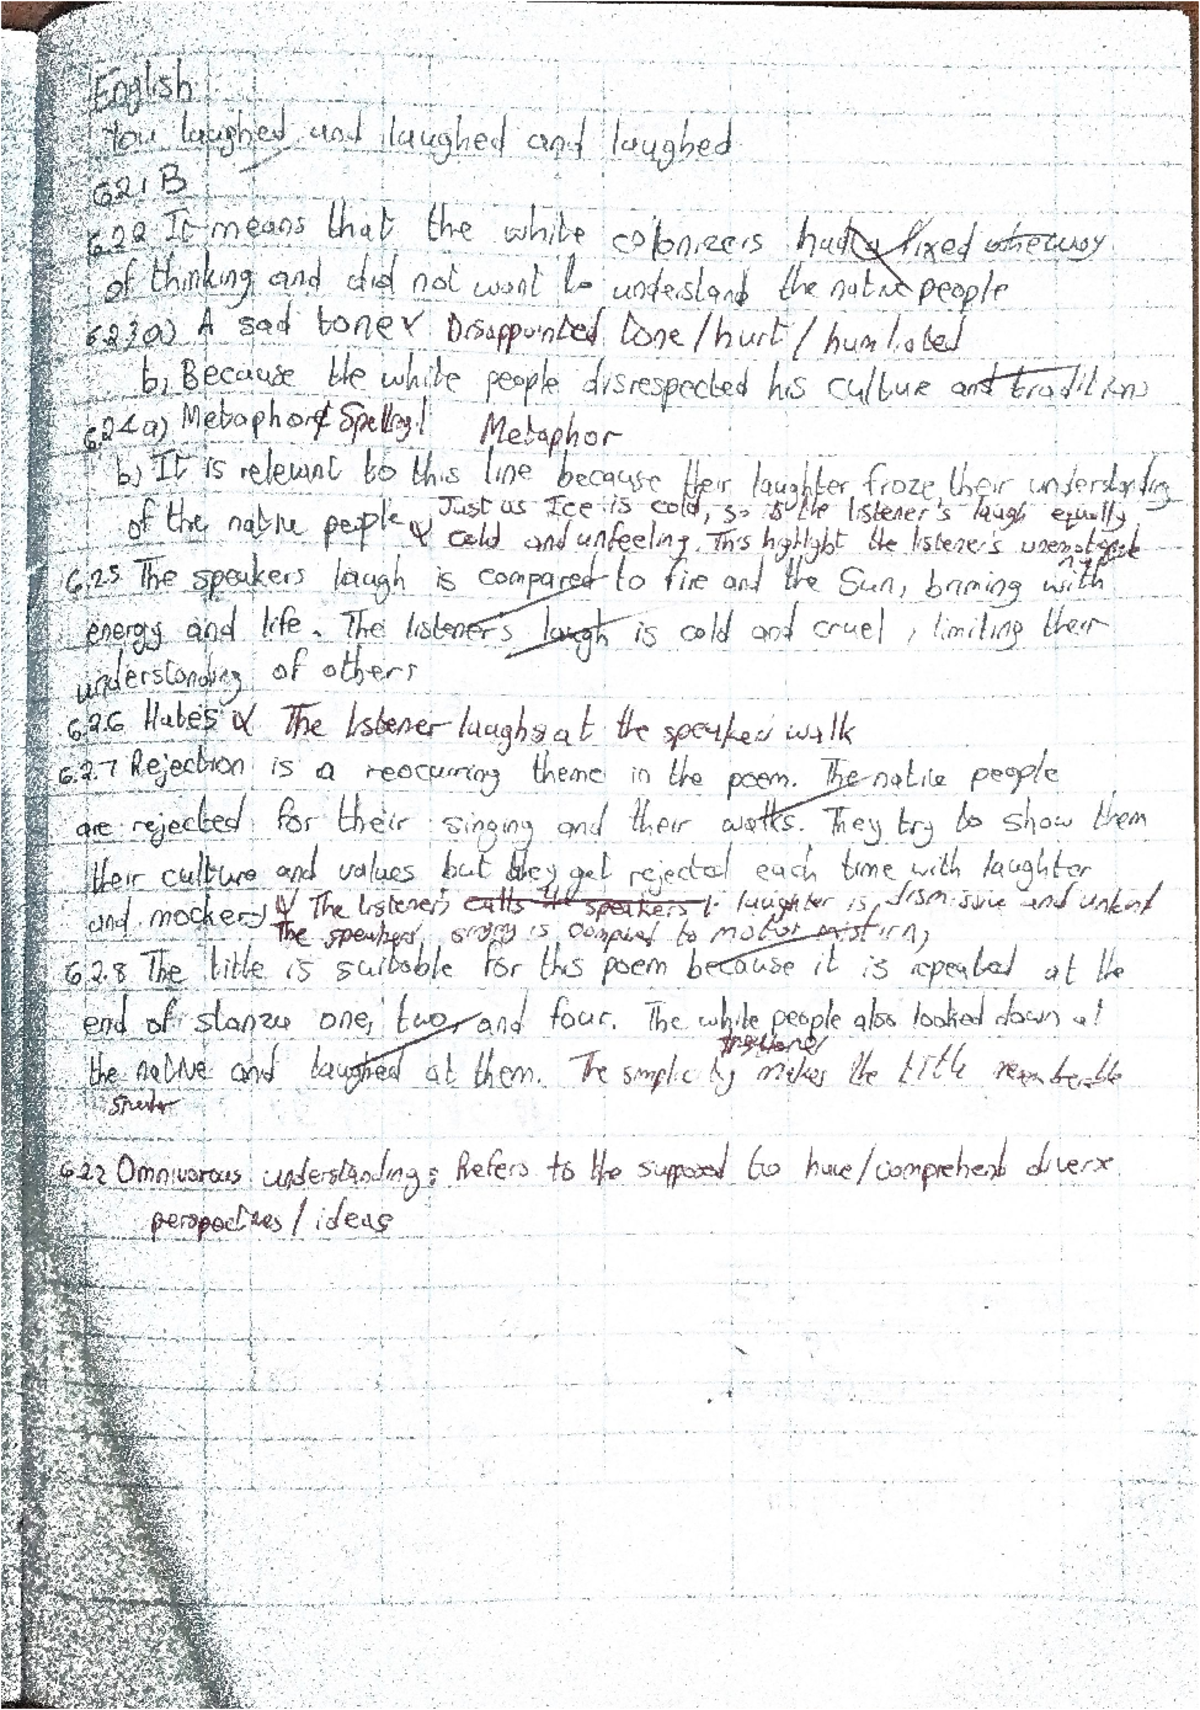 English
You laughed and laughed and laughed
6.2.1 B
6.2.2 It means that the white colonizers had a fixed way
of thinking and did not want to understand the native people
6.2.3 a) A sad tone Disappointed tone / hurt / humliated
b) Because the white people disrespected his culture and traditions
6.2.4 a) Metaphor Spelling! Metaphor
b) It is relevant to this line because their laughter froze their understanding
of the native people Just as Ice is cold, so is the listener's laugh equally
cold and unfeeling. This highlight the listener's
6.2.5 The speakers laugh is compared to fire and the Sun, briming with
energy and life. The listeners laugh is cold and cruel, limiting their
understanding of others
6.2.6 Hates The listener laughs at the speakers walk
6.2.7 Rejection is a reocurring theme in the poem. The native people
are rejected for their singing and their walks. They try to show them
their culture and values but they get rejected each time with laughter
and mockery The listener's calls the speakers laughter is dismissive and unkind
The speakers singing is compared to motor misfiring
6.2.8 The title is suitable for this poem because it is repeated at the
end of stanza one, two, and four. The white people also looked down at
the native and laughed at them. The simplicity makes the title
speaker
6.2.2 Omnivorous understanding: Refers to the supposed to have/comprehend diverse
perspectives / ideas